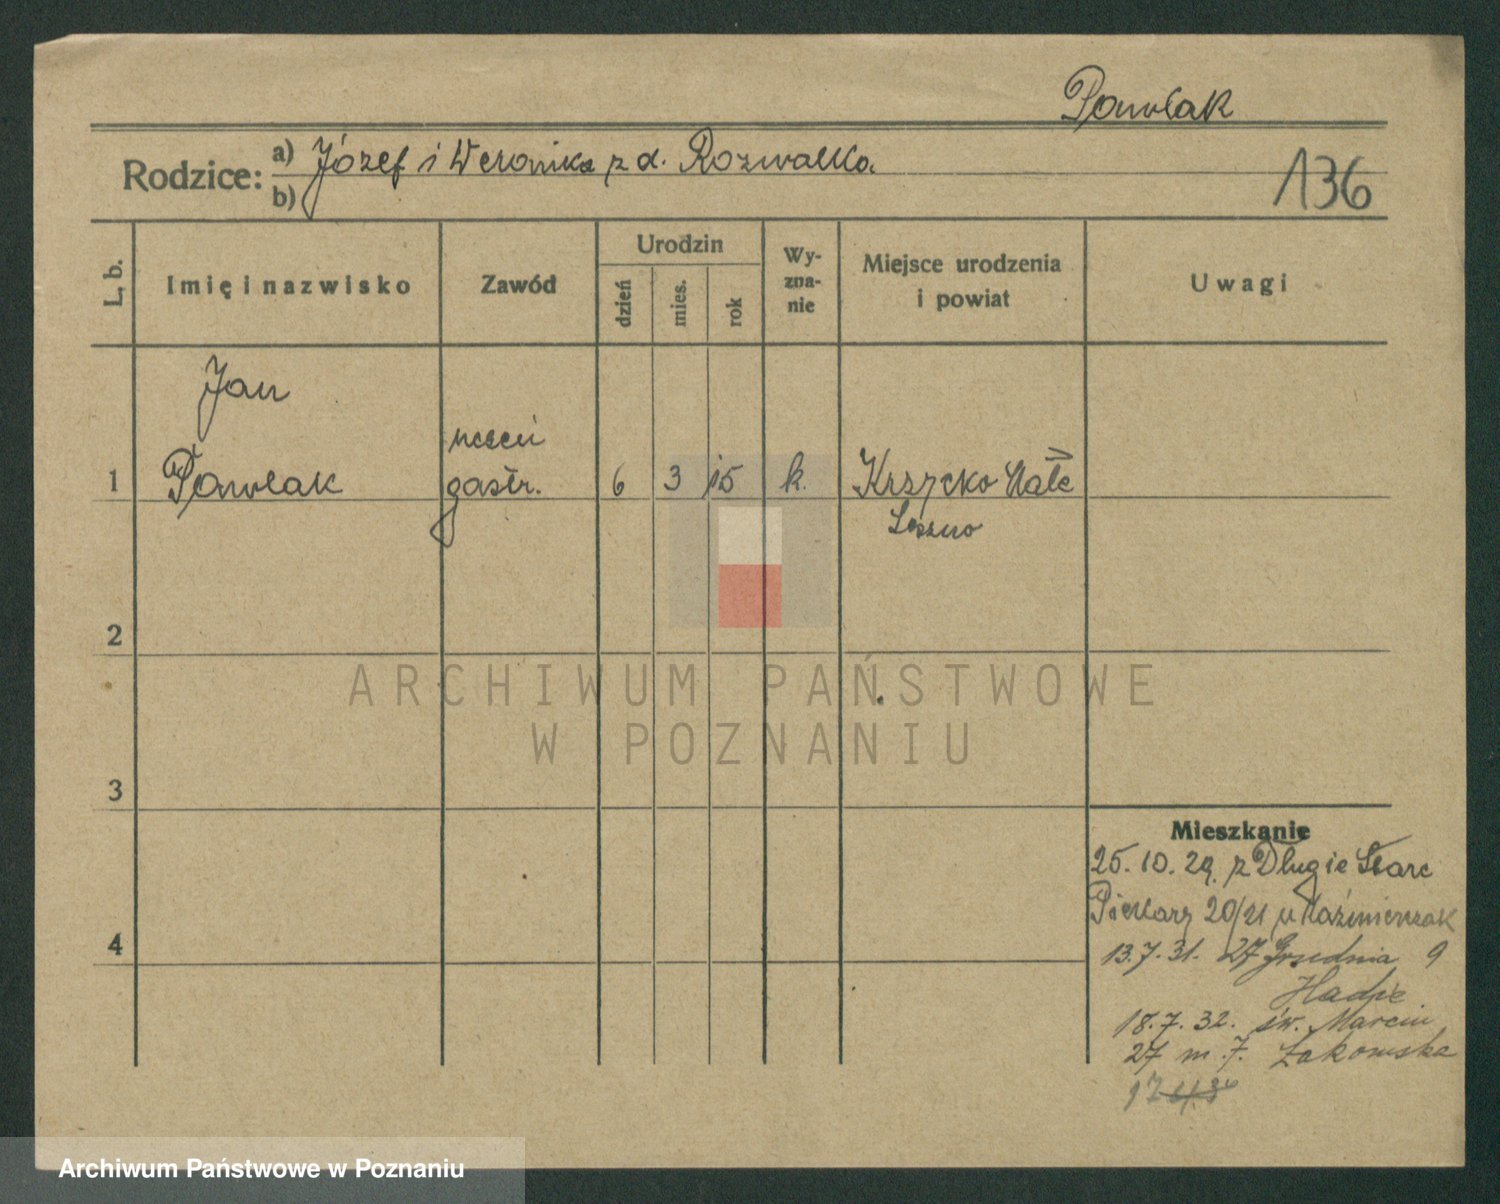 Pawlak
Rodzice: a) Józef i Weronika z d. Rozwalka.
b)
136
L. b.
Imię i nazwisko
Zawód
Urodzin
dzień
mies.
rok
Wy-
zna-
nie
Miejsce urodzenia
i powiat
Uwagi
Jan
1 Pawlak
uczeń
gastr.
6 3 15 k.
Krzycko Małe
Leszno
2
3
4
ARCHIWUM PAŃSTWOWE
W POZNANIU
Mieszkanie
25. 10. 29. z Długie Stare
Piekary 20/21 u Kaźmierczak
13.7.31. 27 Grudnia 9
18.7.32. św. Marcin
27 m. 7. Żakowska
Archiwum Państwowe w Poznaniu